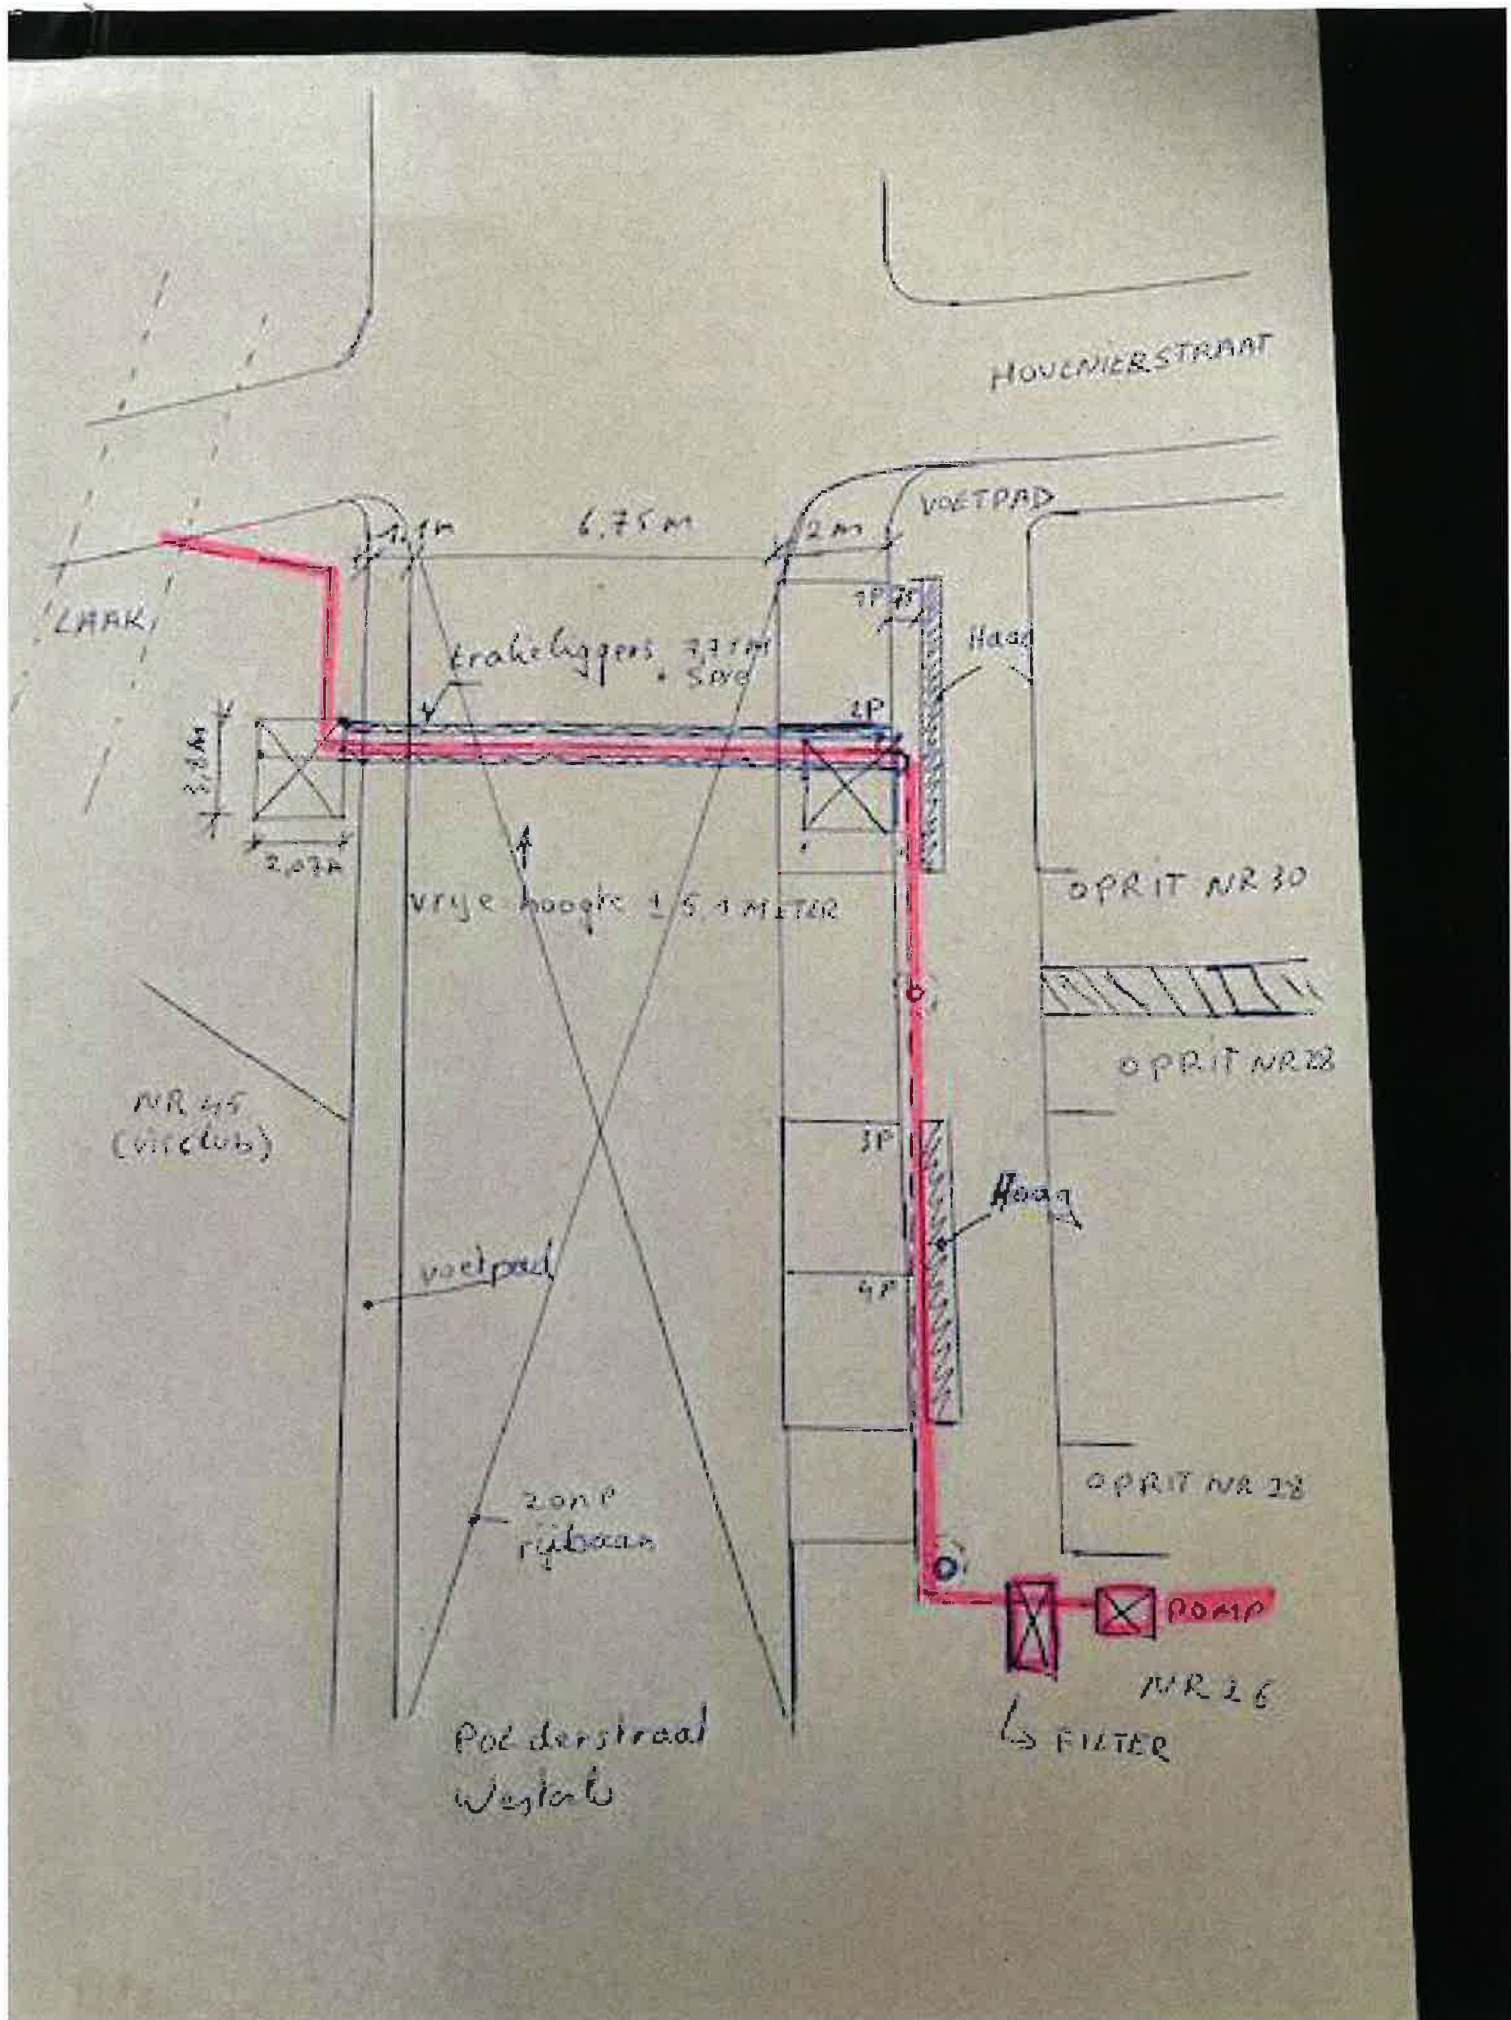 HOVENIERSTRAAT
VOETPAD
1,1m
6,75m
2m
LAAK
1P
Haag
2P
2,07m
vrije hoogte ± 5,1 METER
OPRIT NR 30
OPRIT NR 28
NR 45
(visclub)
3P
Haag
4P
voetpad
zone
rijbaan
OPRIT NR 28
POMP
NR 26
FILTER
Polderstraat